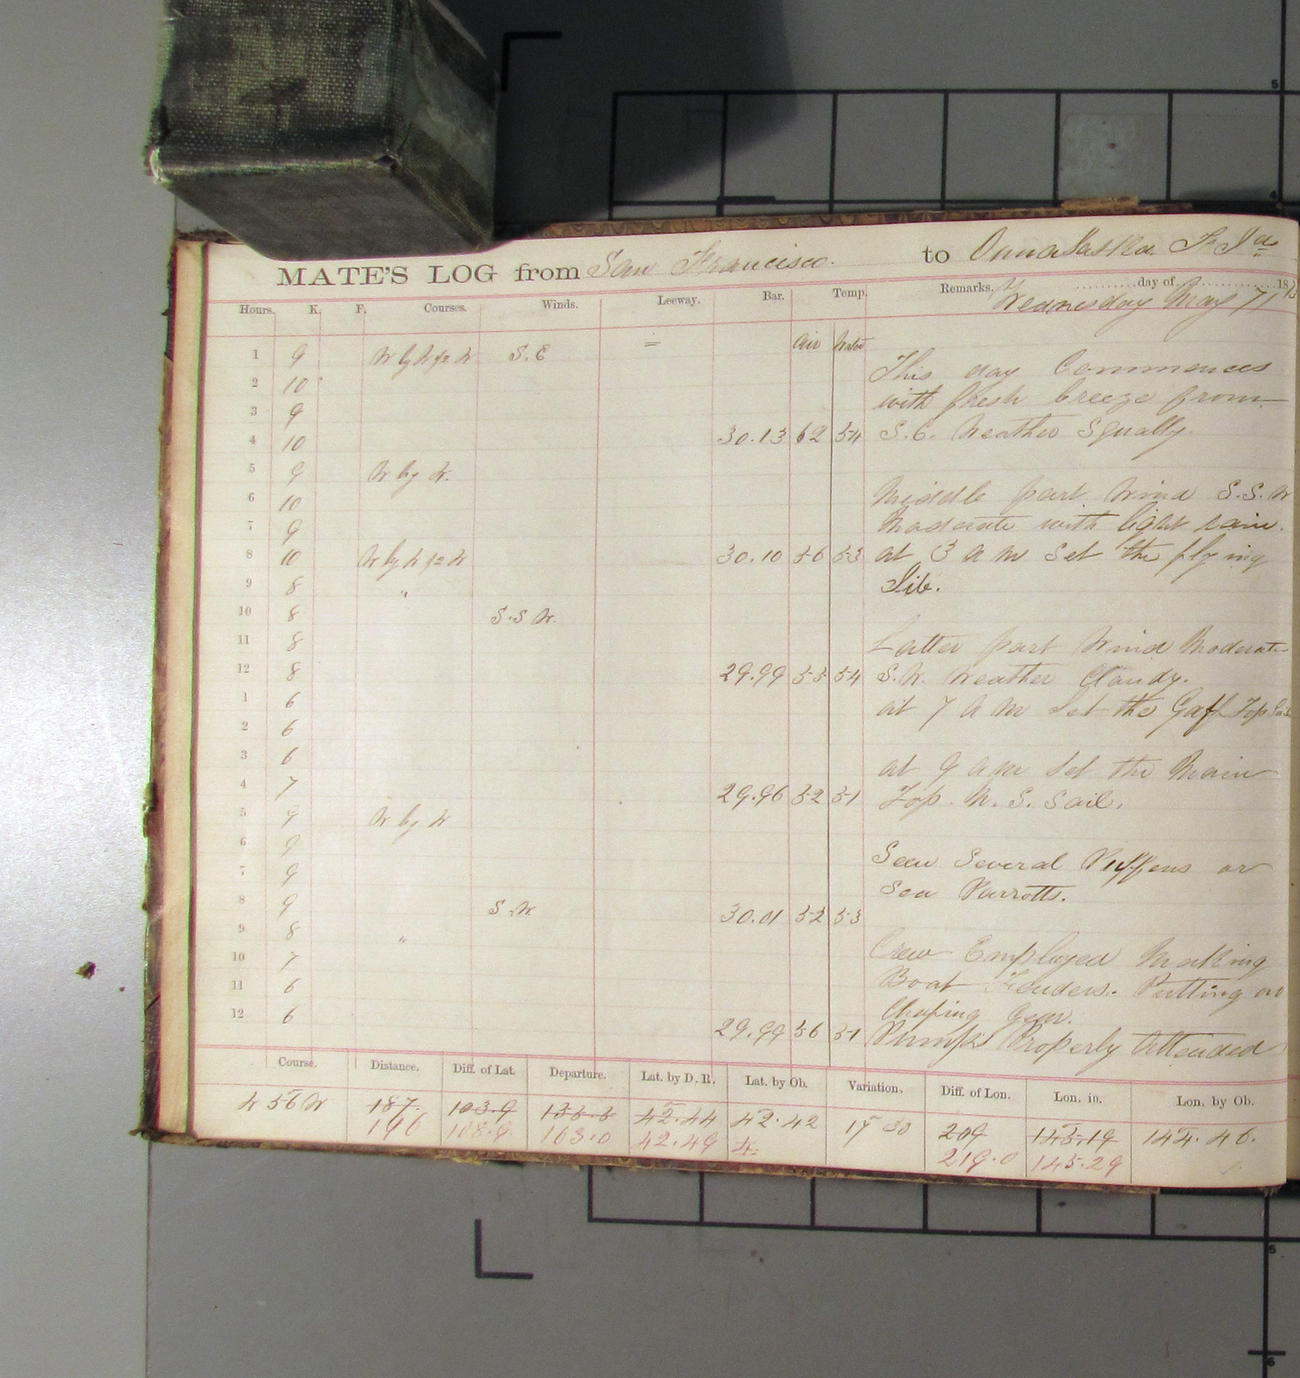 MATE'S LOG from San Francisco. to Ounalaska
Hours. K. F. Courses. Winds. Leeway. Bar. Temp. Remarks. day of 18
Wednesday May 7
Air Water
1 9 W by N ½ W S.E =
This day Commences
2 10
with fresh breeze from
3 9
4 10 30.13 62 54 S.E. Weather Squally.
5 9 W by N.
6 10 Middle part Wind S.S.W
7 9 Moderate with light rain.
8 10 W by N ½ W 30.10 56 53 at 3 A M Set the flying
9 8 " Jib.
10 8 S.S W.
11 8 Latter part Wind Moderate
12 8 29.99 55 54 S.W. Weather Cloudy.
1 6 at 7 A M Set the Gaff Top Sail
2 6
3 6 at 9 A M Set the Main
4 7 29.96 52 51 Top. M. S. Sail.
5 9 W by N
6 9 Seen Several Puffens or
7 9 Sea Parrotts.
8 9 S.W 30.01 52 53
9 8 "
10 7 Crew Employed Making
11 6 Boat Fenders. Putting on
12 6 Chafing Gear.
29.99 56 51 Pumps Properly Attended
Course. Distance. Diff. of Lat. Departure. Lat. by D. R. Lat. by Ob. Variation. Diff. of Lon. Lon. in. Lon. by Ob.
N 56 W 187. 103.9 42.44 42.42 17 30 209 145.19 144.46.
196 108.9 163.0 42.49 219.0 145.29